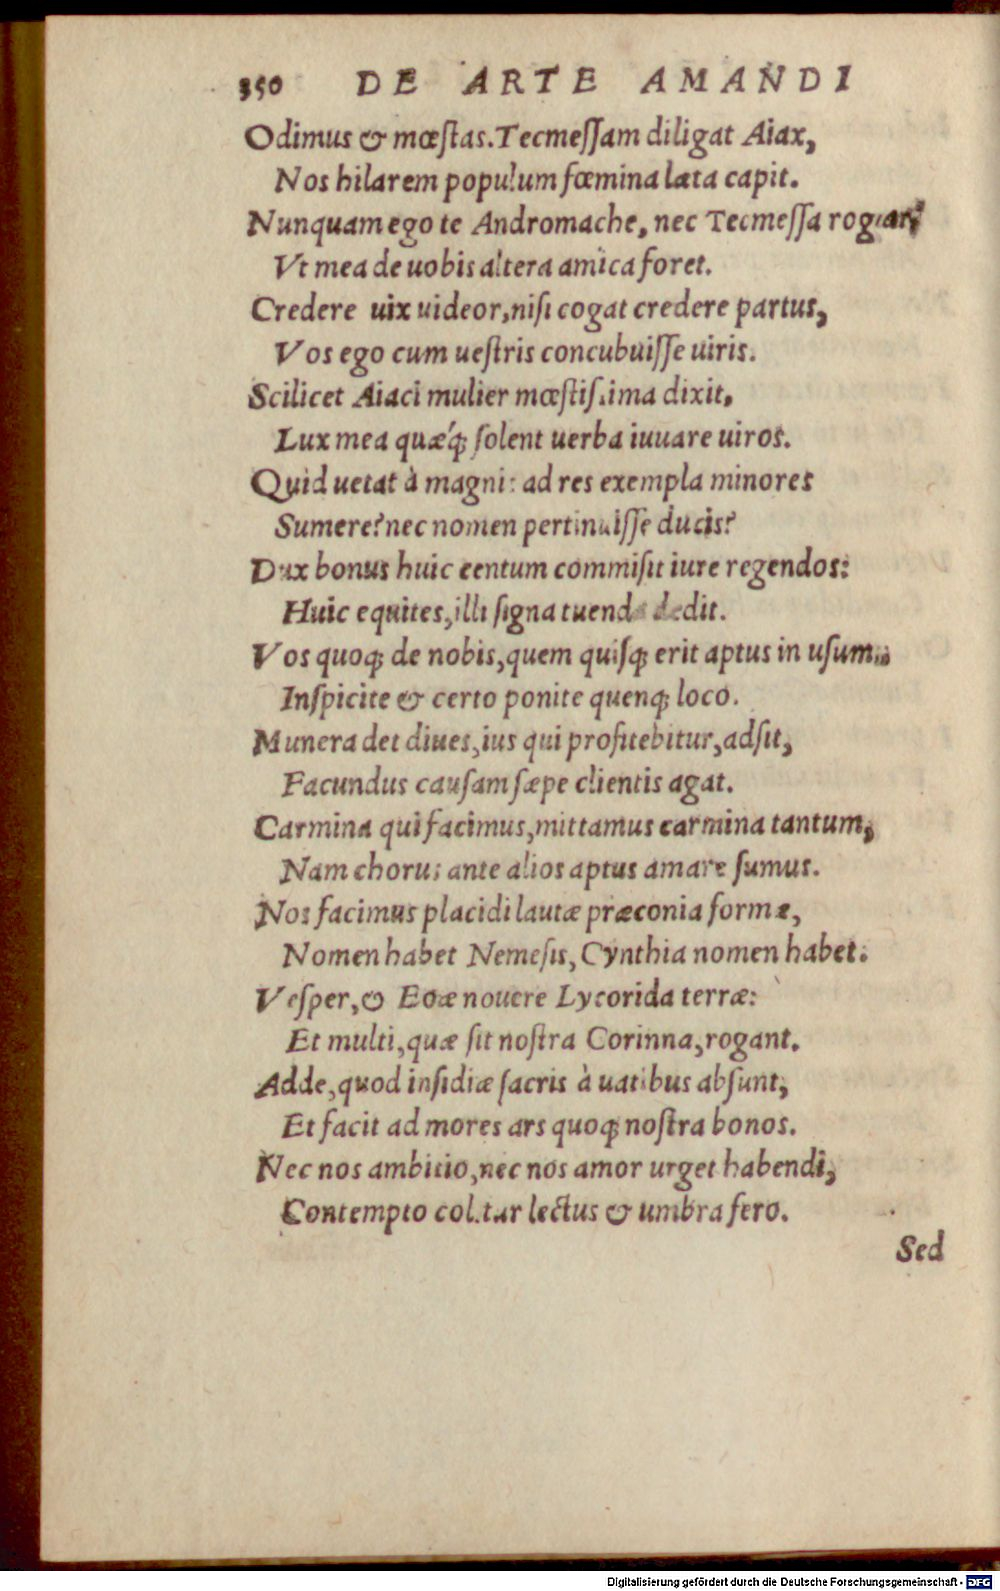 350 DE ARTE AMANDI
Odimus & mœſtas. Tecmeſſam diligat Aiax,
Nos hilarem populum fœmina læta capit.
Nunquam ego te Andromache, nec Tecmeſſa rogarē,
Vt mea de uobis altera amica foret.
Credere uix uideor, niſi cogat credere partus,
Vos ego cum ueſtris concubuiſſe uiris.
Scilicet Aiaci mulier mœſtiſsima dixit,
Lux mea quǽq; ſolent uerba iuuare uiros.
Quid uetat à magnis ad res exempla minores
Sumere? nec nomen pertinuiſſe ducis?
Dux bonus huic centum commiſit iure regendos:
Huic equites, illi ſigna tuenda dedit.
Vos quoq; de nobis, quem quiſq; erit aptus in uſum,
Inſpicite & certo ponite quenq; loco.
Munera det diues, ius qui profitebitur, adſit,
Facundus cauſam ſæpe clientis agat.
Carmina qui facimus, mittamus carmina tantum,
Nam chorus ante alios aptus amare ſumus.
Nos facimus placidi lautæ præconia formæ,
Nomen habet Nemeſis, Cynthia nomen habet.
Veſper, & Eoæ nouere Lycorida terræ:
Et multi, quæ ſit noſtra Corinna, rogant.
Adde, quod inſidiæ ſacris à uatibus abſunt,
Et facit ad mores ars quoq; noſtra bonos.
Nec nos ambitio, nec nos amor urget habendi,
Contempto colitur lectus & umbra fero.
Sed
Digitalisierung gefördert durch die Deutsche Forschungsgemeinschaft - DFG